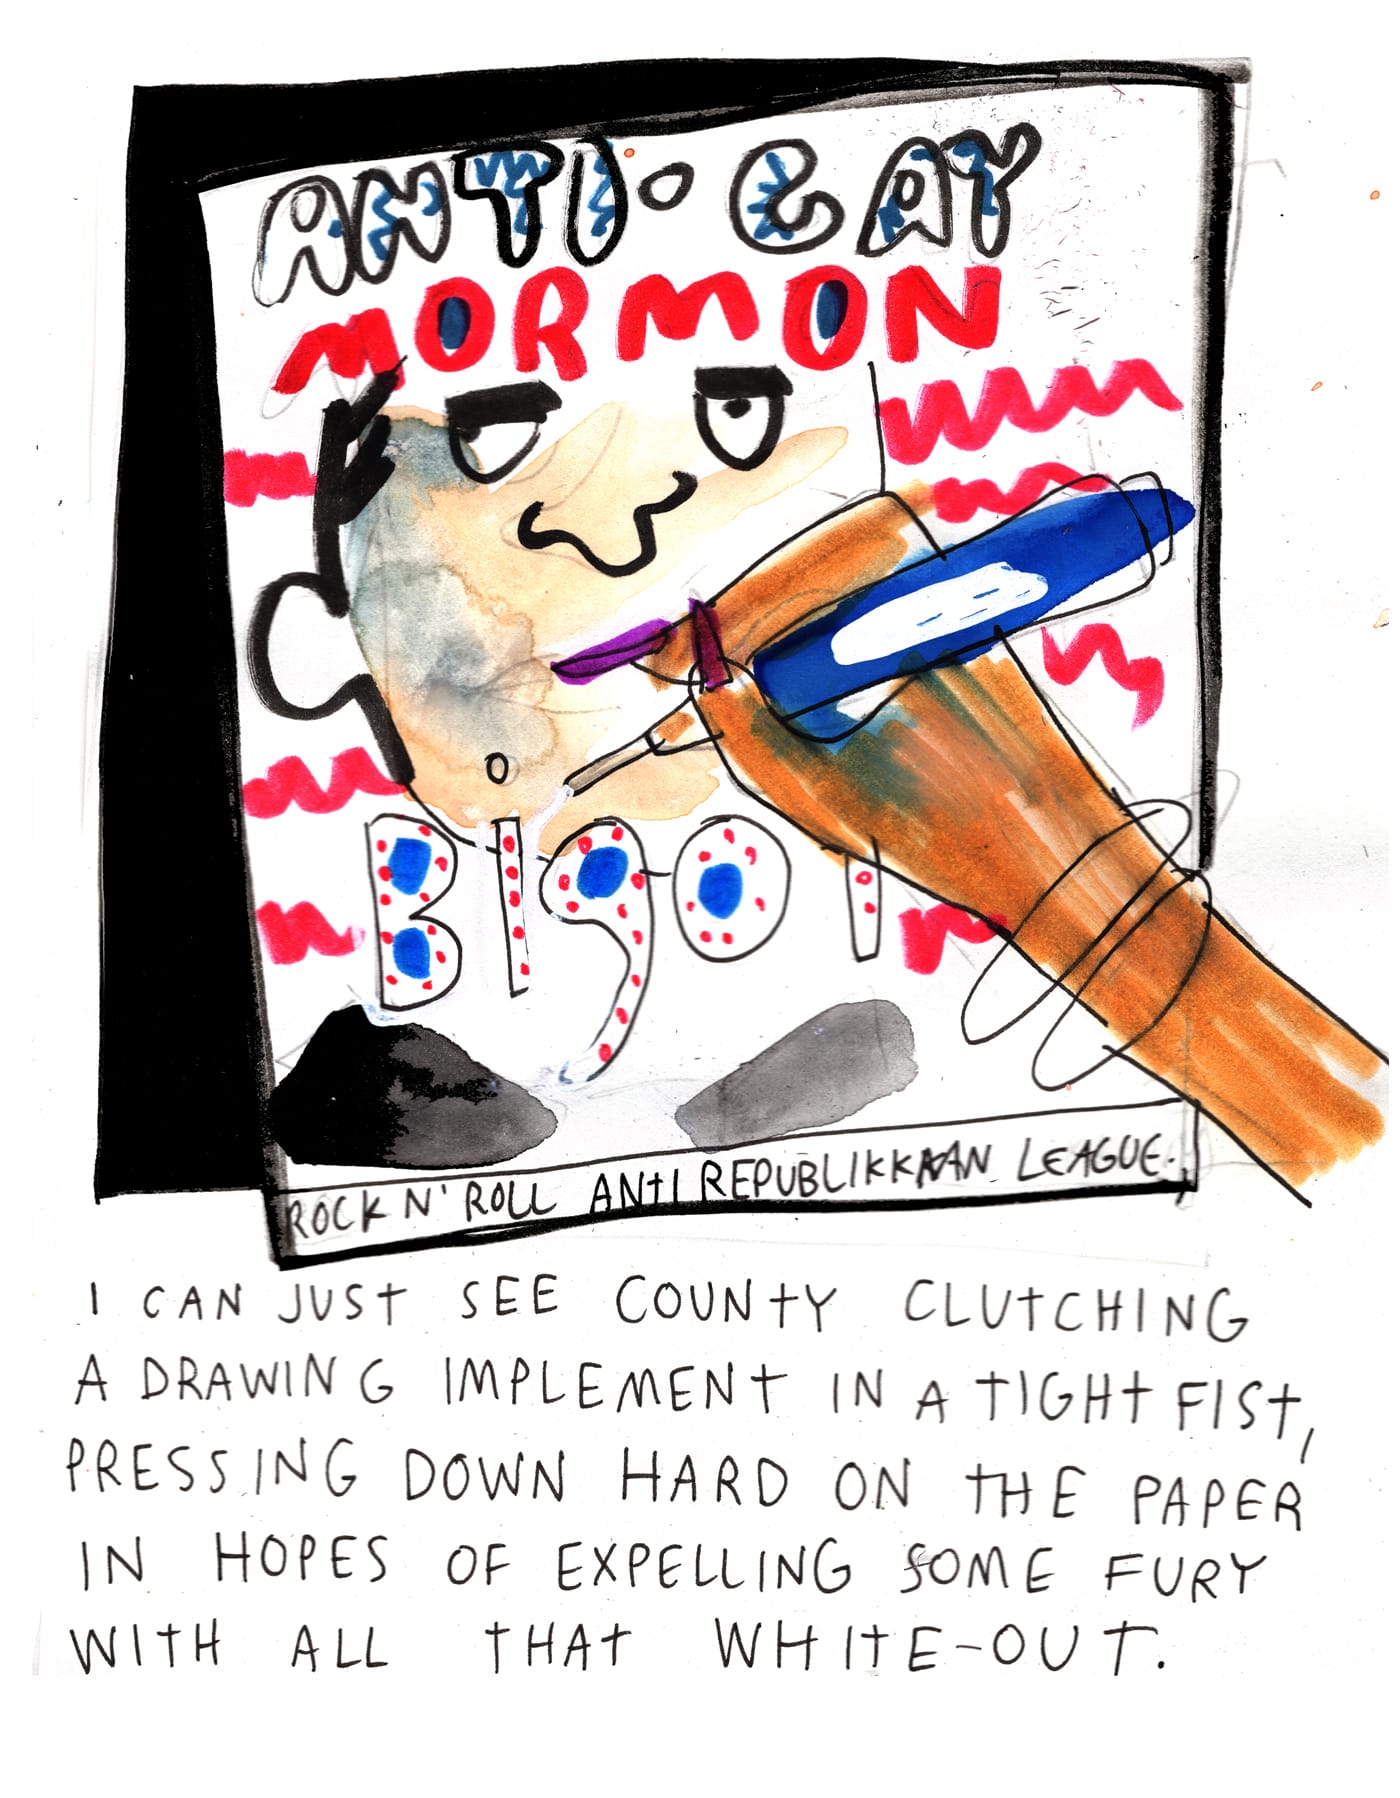 ANTI-GAY
MORMON
BIGOT
ROCK N' ROLL ANTI REPUBLIKKKAN LEAGUE.
I CAN JUST SEE COUNTY CLUTCHING
A DRAWING IMPLEMENT IN A TIGHT FIST,
PRESSING DOWN HARD ON THE PAPER
IN HOPES OF EXPELLING SOME FURY
WITH ALL THAT WHITE-OUT.